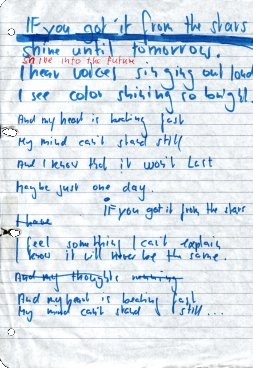 If you got it from the stars
shine until tomorrow.
shine into the future
I hear voices singing out loud
I see color shining so bright.
And my heart is beating fast
My mind can't stand still
And I know that it won't last
Maybe just one day.
If you got it from the stars
I have
I feel something I can't explain
I know it will never be the same.
And my thoughts running
And my heart is beating fast
My mind can't stand still...